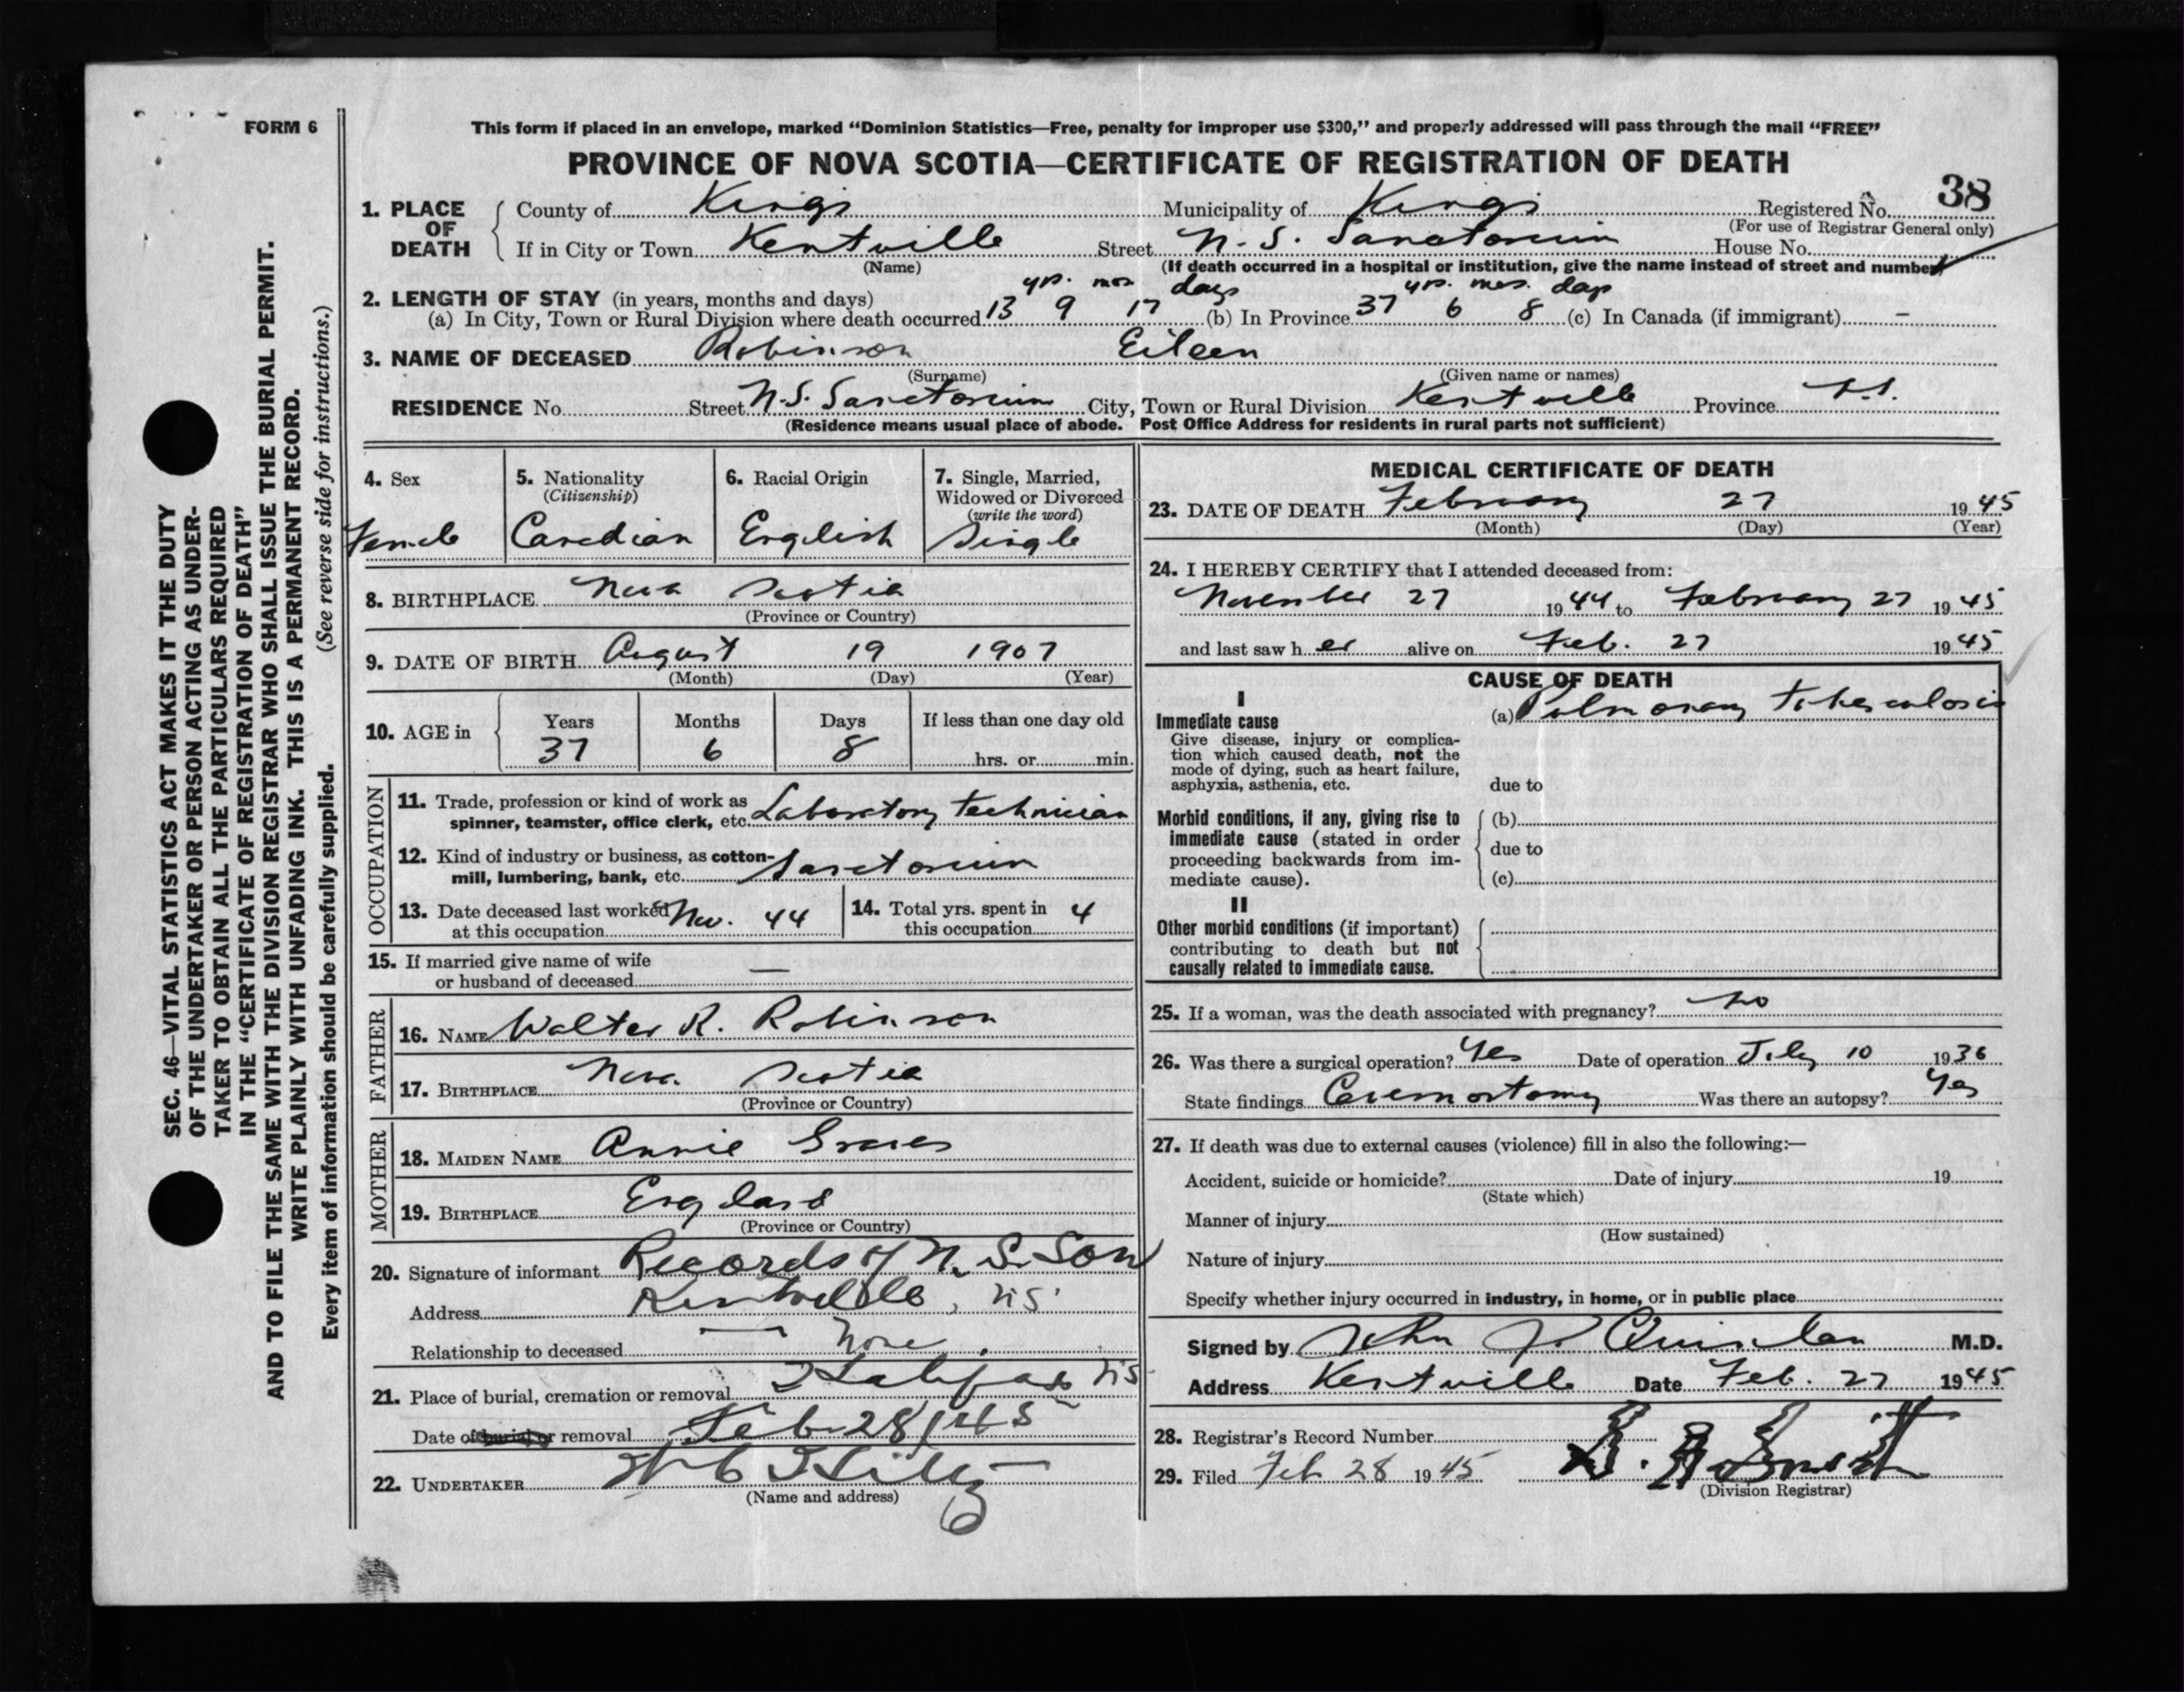 FORM 6
This form if placed in an envelope, marked “Dominion Statistics—Free, penalty for improper use $300,” and properly addressed will pass through the mail “FREE”
PROVINCE OF NOVA SCOTIA—CERTIFICATE OF REGISTRATION OF DEATH
1. PLACE OF DEATH County of Kings Municipality of Kings Registered No. 38
(For use of Registrar General only)
If in City or Town Kentville Street N. S. Sanatorium House No.
(Name) (If death occurred in a hospital or institution, give the name instead of street and number)
2. LENGTH OF STAY (in years, months and days) yrs. mos days yrs. mos. days
(a) In City, Town or Rural Division where death occurred 13 9 17 (b) In Province 37 6 8 (c) In Canada (if immigrant) —
3. NAME OF DECEASED Robinson Eileen
(Surname) (Given name or names)
RESIDENCE No. Street N.S. Sanatorium City, Town or Rural Division Kentville Province N.S.
(Residence means usual place of abode. Post Office Address for residents in rural parts not sufficient)
4. Sex Female
5. Nationality (Citizenship) Canadian
6. Racial Origin English
7. Single, Married, Widowed or Divorced (write the word) Single
8. BIRTHPLACE Nova Scotia
(Province or Country)
9. DATE OF BIRTH August 19 1907
(Month) (Day) (Year)
10. AGE in Years Months Days If less than one day old
37 6 8 hrs. or min.
OCCUPATION
11. Trade, profession or kind of work as
spinner, teamster, office clerk, etc. Laboratory technician
12. Kind of industry or business, as cotton-
mill, lumbering, bank, etc. Sanatorium
13. Date deceased last worked
at this occupation Nov. 44
14. Total yrs. spent in
this occupation 4
15. If married give name of wife
or husband of deceased —
FATHER
16. NAME Walter R. Robinson
17. BIRTHPLACE Nova Scotia
(Province or Country)
MOTHER
18. MAIDEN NAME Annie Graves
19. BIRTHPLACE England
(Province or Country)
20. Signature of informant Records of N. S. San
Address Kentville, NS.
Relationship to deceased — None.
21. Place of burial, cremation or removal Halifax NS
Date of burial or removal Feb 28/45
22. UNDERTAKER
(Name and address)
MEDICAL CERTIFICATE OF DEATH
23. DATE OF DEATH February 27 1945
(Month) (Day) (Year)
24. I HEREBY CERTIFY that I attended deceased from:
November 27 1944 to February 27 1945
and last saw her alive on Feb. 27 1945
CAUSE OF DEATH
I
Immediate cause (a) Pulmonary tuberculosis
Give disease, injury or complica-
tion which caused death, not the
mode of dying, such as heart failure,
asphyxia, asthenia, etc. due to
Morbid conditions, if any, giving rise to (b)
immediate cause (stated in order
proceeding backwards from im- due to
mediate cause). (c)
II
Other morbid conditions (if important)
contributing to death but not
causally related to immediate cause.
25. If a woman, was the death associated with pregnancy? no
26. Was there a surgical operation? Yes Date of operation July 10 1936
State findings Cavernostomy Was there an autopsy? Yes
27. If death was due to external causes (violence) fill in also the following:—
Accident, suicide or homicide? Date of injury 19
(State which)
Manner of injury
(How sustained)
Nature of injury
Specify whether injury occurred in industry, in home, or in public place
Signed by John J. Quinlan M.D.
Address Kentville Date Feb. 27 1945
28. Registrar's Record Number
29. Filed Feb 28 1945
(Division Registrar)
SEC. 46—VITAL STATISTICS ACT MAKES IT THE DUTY
OF THE UNDERTAKER OR PERSON ACTING AS UNDER-
TAKER TO OBTAIN ALL THE PARTICULARS REQUIRED
IN THE “CERTIFICATE OF REGISTRATION OF DEATH”
AND TO FILE THE SAME WITH THE DIVISION REGISTRAR WHO SHALL ISSUE THE BURIAL PERMIT.
WRITE PLAINLY WITH UNFADING INK. THIS IS A PERMANENT RECORD.
Every item of information should be carefully supplied. (See reverse side for instructions.)